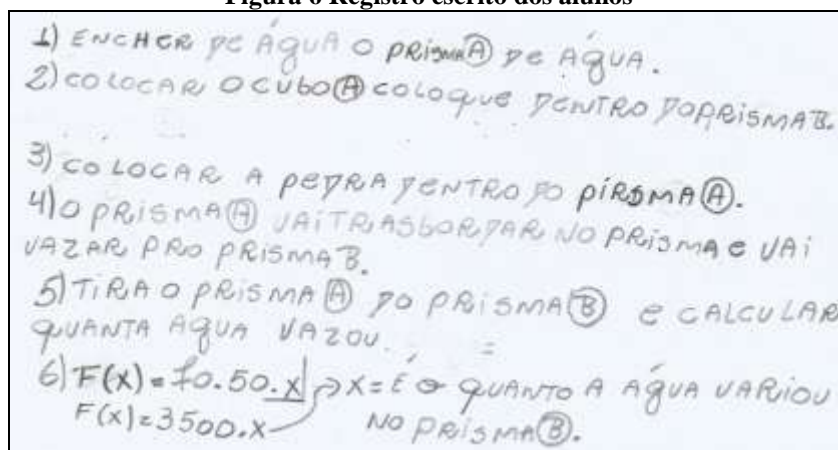 Figura 6 Registro escrito dos alunos
1) ENCHER DE ÁGUA O PRISMA Ⓐ DE ÁGUA.
2) COLOCAR O CUBO Ⓐ COLOQUE DENTRO DO PRISMA B.
3) COLOCAR A PEDRA DENTRO DO PIRSMA Ⓐ.
4) O PRISMA Ⓐ VAI TRASBORDAR NO PRISMA E VAI
VAZAR PRO PRISMA B.
5) TIRA O PRISMA Ⓐ DO PRISMA Ⓑ E CALCULAR
QUANTA AGUA VAZOU. =
6) F(X) = 70.50.X → X = É O QUANTO A AGUA VARIOU
F(X) = 3500.X NO PRISMA Ⓑ.